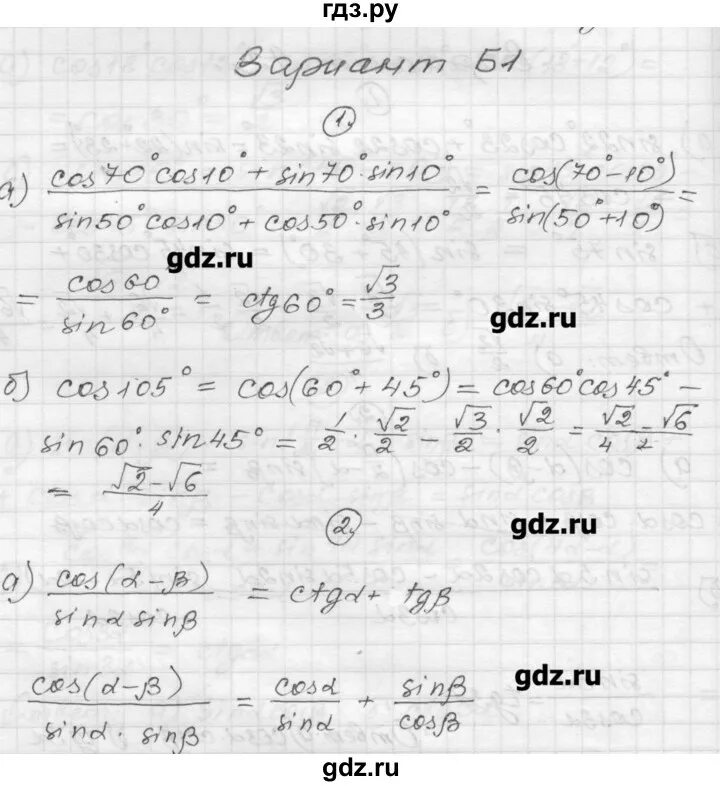 гдз.ру
Вариант Б1
1.
а) cos70°cos10° + sin70°·sin10° / sin50°cos10° + cos50°·sin10° = cos(70°-10°) / sin(50°+10°) =
gdz.ru
= cos60 / sin60° = ctg60° = √3/3
gdz.ru
б) cos105° = cos(60°+45°) = cos60°cos45° -
sin60°·sin45° = 1/2 · √2/2 - √3/2 · √2/2 = √2/4 - √6/2
= √2-√6 / 4
gdz.ru
2.
а) cos(α-β) / sinα sinβ = ctgα + tgβ
gdz.ru
cos(α-β) / sinα · sinβ = cosα / sinα + sinβ / cosβ
gdz.ru